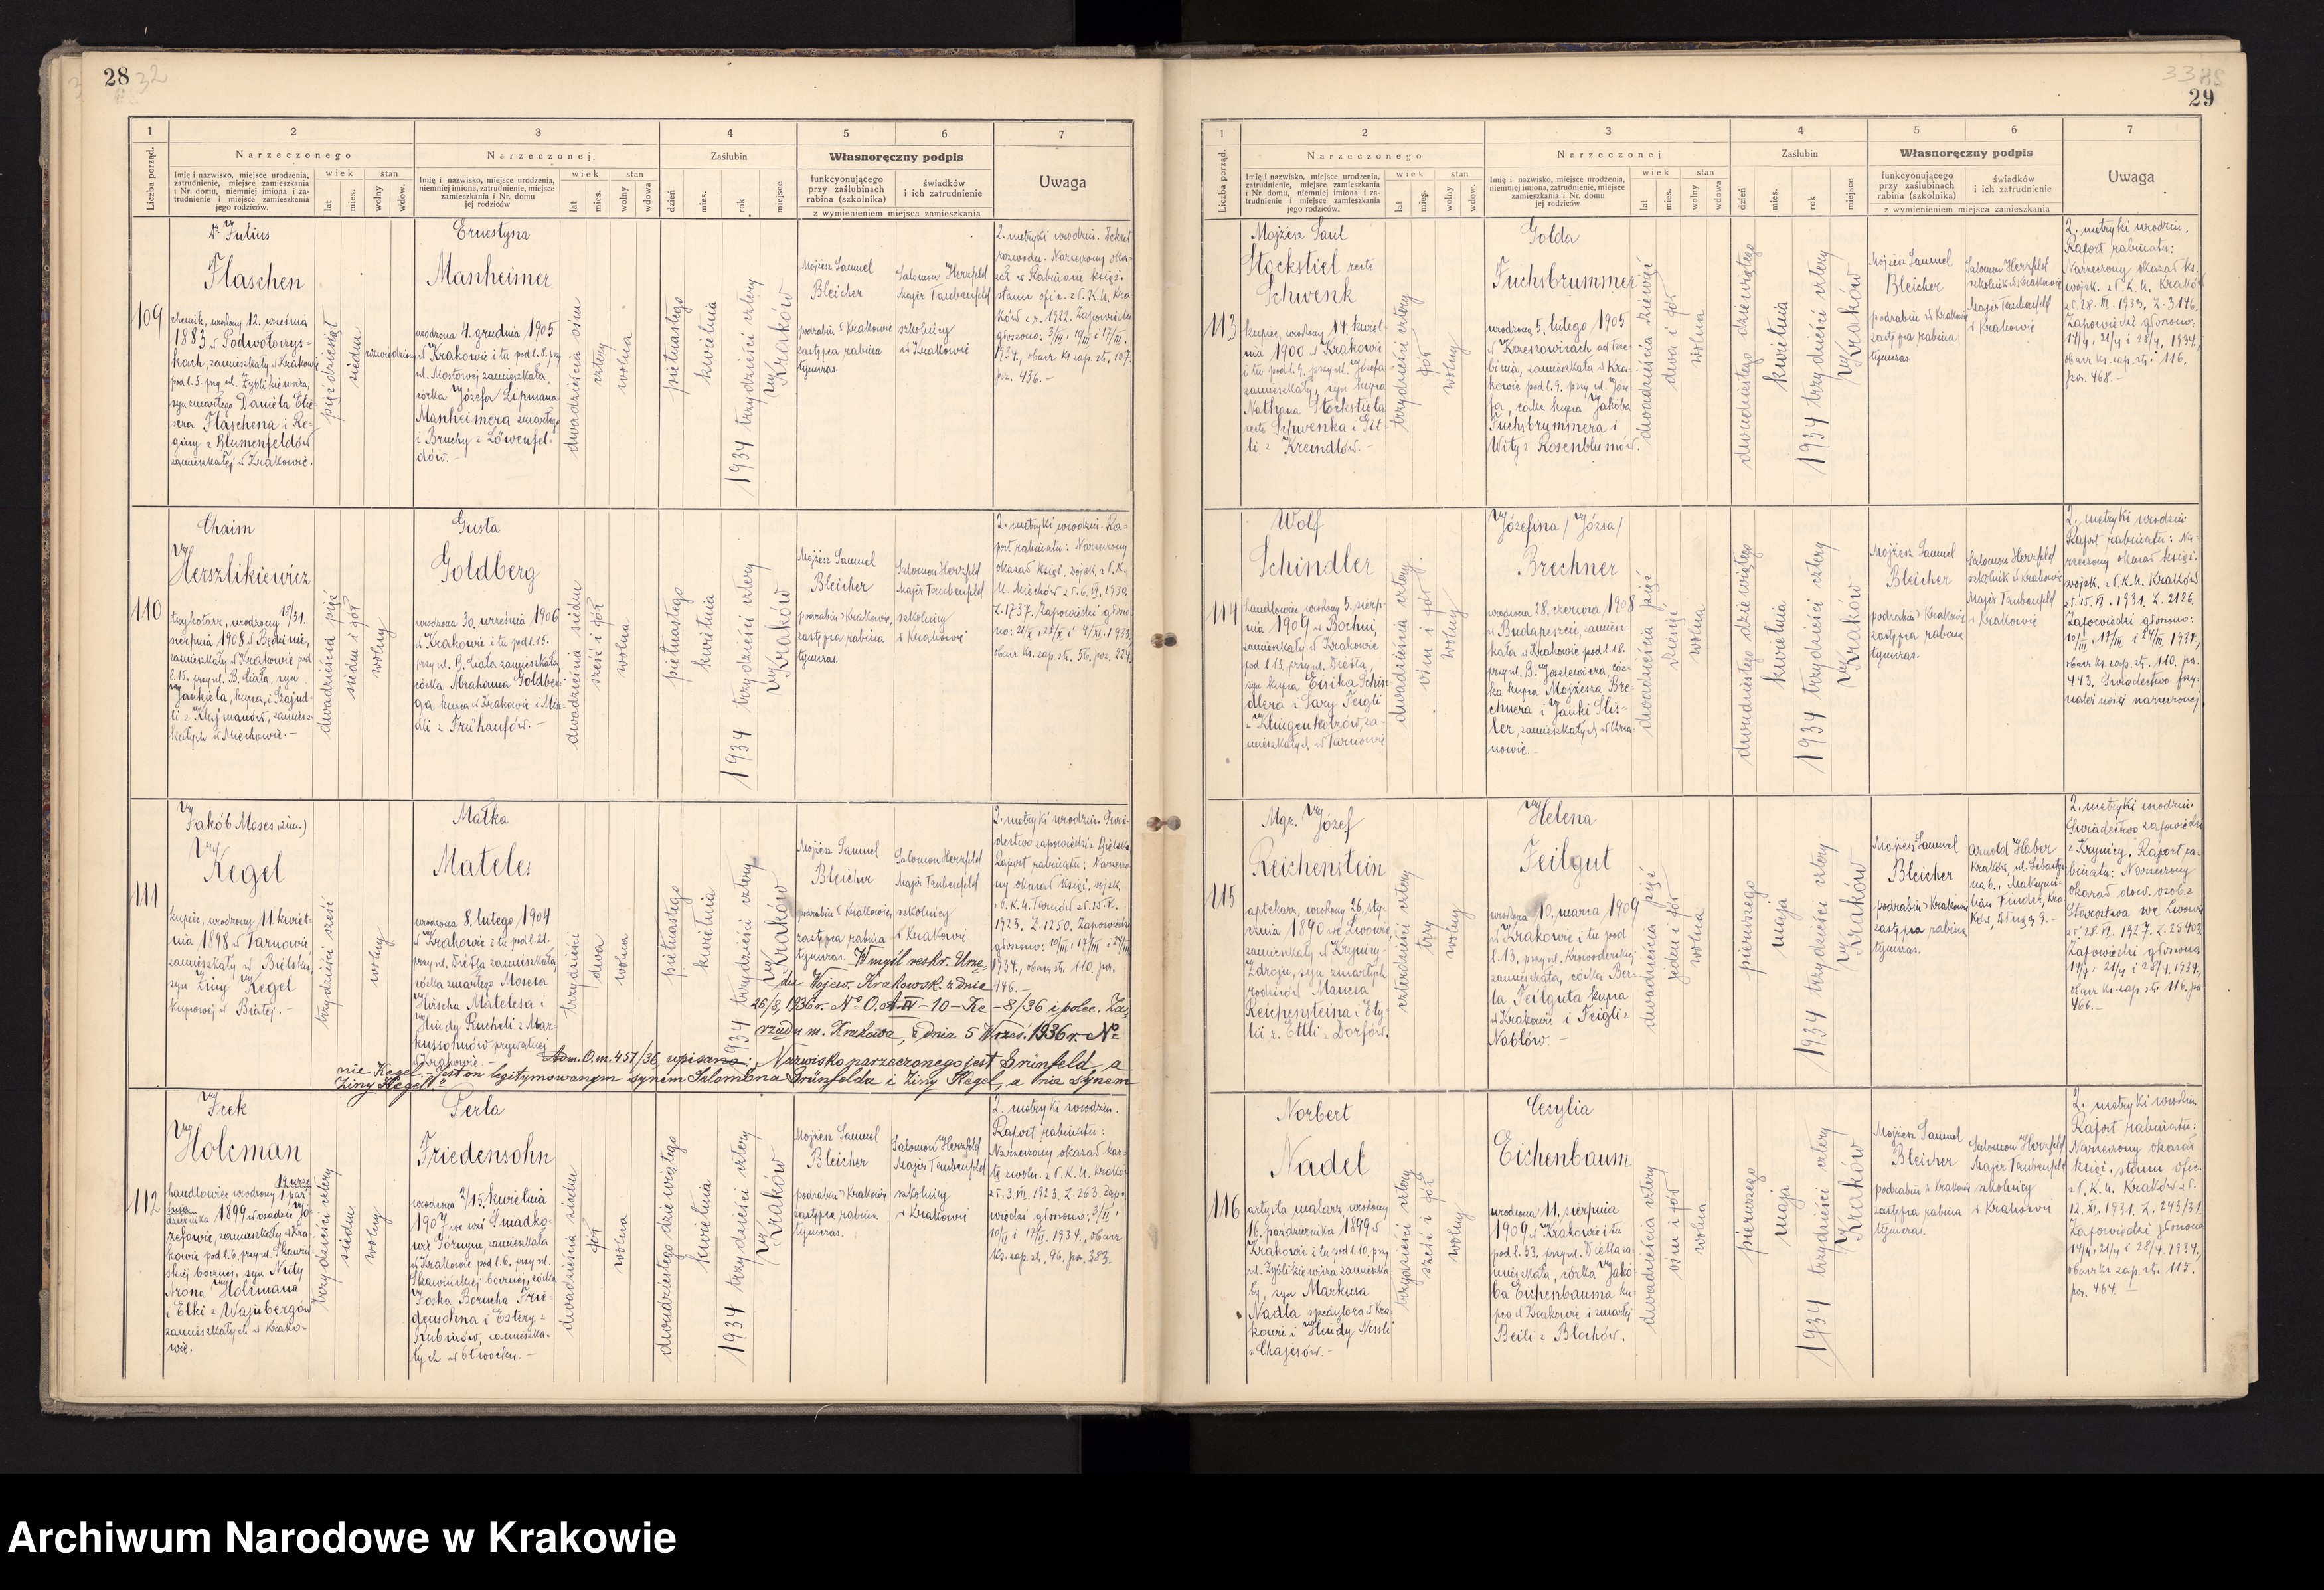 28 32
1 2 3 4 5 6 7
Liczba porząd.
Narzeczonego
Imię i nazwisko, miejsce urodzenia,
zatrudnienie, miejsce zamieszkania
i Nr. domu, niemniej imiona i za-
trudnienie i miejsce zamieszkania
jego rodziców.
wiek
lat
mies.
stan
wolny
wdow.
Narzeczonej.
Imię i nazwisko, miejsce urodzenia,
niemniej imiona, zatrudnienie, miejsce
zamieszkania i Nr. domu
jej rodziców
wiek
lat
mies.
stan
wolny
wdowa
Zaślubin
dzień
mies.
rok
miejsce
Własnoręczny podpis
funkcyonującego
przy zaślubinach
rabina (szkolnika)
świadków
i ich zatrudnienie
z wymienieniem miejsca zamieszkania
Uwaga
109
Dr. Julius
Flaschen
chemik, urodzony 12. września
1883 w Podwołoczys-
kach, zamieszkały w Krakowie
pod l. 5. przy ul. Zyblikiewicza,
syn zmarłego Daniela Elie-
sera Flaschena i Re-
giny z Blumenfeldów
zamieszkałej w Krakowie.
pięćdziesiąt
siedm
rozwiedziony
Ernestyna
Manheimer
urodzona 4. grudnia 1905
w Krakowie i tu pod l. 8. przy
ul. Mostowej zamieszkała,
córka Józefa Lipmana
Manheimera zmarłego
i Bruchy z Löwenfel-
dów. —
dwadzieścia ośm
cztery
wolna
piętnastego
kwietnia
1934 trzydzieści cztery
Kraków
Mojżesz Samuel
Bleicher
podrabin w Krakowie
zastępca rabina
tymczas.
Salomon Herzfeld
Majer Taubenfeld
szkolnicy
w Krakowie
2. metryki urodzin. Dekret
rozwodu. Narzeczony oka-
zał w Rabinacie księż.
stanu ofic. z P. K. U. Kra-
ków z r. 1922. Zapowiedzi
głoszono: 3/III, 10/III i 17/III.
1934, obacz ks. zap. str. 107.
poz. 436. —
110
Chaim
Herszlikiewicz
trykotarz, urodzony 18/31.
sierpnia 1908 w Będzinie,
zamieszkały w Krakowie pod
l. 15. przy ul. B. Ciała, syn
Jankiela, kupca, i Szajnd-
li z Klajmanów, zamiesz-
kałych w Miechowie. —
dwadzieścia pięć
siedm i pół
wolny
Gusta
Goldberg
urodzona 30. września 1906
w Krakowie i tu pod l. 15.
przy ul. B. Ciała zamieszkała,
córka Abrahama Goldber-
ga kupca w Krakowie i Min-
dli z Frühaufów. —
dwadzieścia siedm
sześć i pół
wolna
piętnastego
kwietnia
1934 trzydzieści cztery
Kraków
Mojżesz Samuel
Bleicher
podrabin w Krakowie,
zastępca rabina
tymczas.
Salomon Herzfeld
Majer Taubenfeld
szkolnicy
w Krakowie
2. metryki urodzin. Ra-
port rabinatu: Narzeczony
okazał księż. wojsk. z P. K.
U. Miechów z d. 6. VI. 1930.
L. 1737. Zapowiedzi głoszo-
no: 21/X, 28/X i 4/XI. 1933,
obacz ks. zap. str. 56. poz. 224.
111
Jakób Moses (2 im.)
Kegel
kupiec, urodzony 11. kwiet-
nia 1898 w Tarnowie,
zamieszkały w Bielsku,
syn Ziny Kegel
kupcowej w Białej. —
trzydzieści sześć
wolny
Małka
Mateles
urodzona 8. lutego 1904
w Krakowie i tu pod l. 21.
przy ul. Dietla zamieszkała,
córka zmarłego Mosesa
Hirscha Matelesa i
Hindy Rucheli z Mar-
kussohnów prywatnej
w Krakowie. —
trzydzieści
dwa
wolna
piętnastego
kwietnia
1934 trzydzieści cztery
Kraków
Mojżesz Samuel
Bleicher
podrabin w Krakowie,
zastępca rabina
tymczas.
Salomon Herzfeld
Majer Taubenfeld
szkolnicy
w Krakowie
2. metryki urodzin. Świa-
dectwo zapowiedzi z Bielska.
Raport rabinatu: Narzeczo-
ny okazał księż. wojsk.
z P. K. U. Tarnów z d. 15. X.
1923. L. 1250. Zapowiedzi
głoszono: 10/III, 17/III i 24/III
1934., obacz str. 110. poz.
446. —
W myśl reskr. Urzę-
du Wojew. Krakowsk. z dnia
26/8. 1936 r. No. O.A.IV – 10 – Ke – 8/36 i polec. Za-
rządu m. Krakowa, z dnia 5 Wrześ. 1936 r. No
Adm. O.m. 451/36, wpisano: „Nazwisko narzeczonego jest Grünfeld, a
nie Kegel. – Jest on legitymowanym synem Salomona Grünfelda i Ziny Kegel, a nie synem
Ziny Kegel."
112
Icek
Holcman
handlowiec urodzony 19 wrze-
śnia 1 paź-
dziernika 1899 w osadzie Jó-
zefowie, zamieszkały w Kra-
kowie pod l. 6. przy ul. Skawiń-
skiej bocznej, syn Nuty
Arona Holcmana
i Elki z Wajnbergów
zamieszkałych w Krako-
wie.
trzydzieści cztery
siedm
wolny
Perla
Friedensohn
urodzona 2/15. kwietnia
1907 we wsi Smiadko-
wie Górnym, zamieszkała
w Krakowie pod l. 6. przy ul.
Skawińskiej bocznej, córka
Joska Borucha Frie-
densohna i Estery z
Rubinów, zamieszka-
łych w Otwocku. —
dwadzieścia siedm
pół
wolna
dwudziestego dziewiątego
kwietnia
1934 trzydzieści cztery
Kraków
Mojżesz Samuel
Bleicher
podrabin w Krakowie
zastępca rabina
tymczas.
Salomon Herzfeld
Majer Taubenfeld
szkolnicy
w Krakowie
2. metryki urodzin.
Raport rabinatu:
Narzeczony okazał kar-
tę zwoln. z P. K. U. Kraków
z d. 3. VII. 1923. L. 263. Zapo-
wiedzi głoszono: 3/II,
10/II i 17/II. 1934., obacz
ks. zap. str. 96. poz. 383.
33
29
1 2 3 4 5 6 7
Liczba porząd.
Narzeczonego
Imię i nazwisko, miejsce urodzenia,
zatrudnienie, miejsce zamieszkania
i Nr. domu, niemniej imiona i za-
trudnienie i miejsce zamieszkania
jego rodziców.
wiek
lat
mies.
stan
wolny
wdow.
Narzeczonej
Imię i nazwisko, miejsce urodzenia,
niemniej imiona, zatrudnienie, miejsce
zamieszkania i Nr. domu
jej rodziców
wiek
lat
mies.
stan
wolny
wdowa
Zaślubin
dzień
mies.
rok
miejsce
Własnoręczny podpis
funkcyonującego
przy zaślubinach
rabina (szkolnika)
świadków
i ich zatrudnienie
z wymienieniem miejsca zamieszkania
Uwaga
113
Mojżesz Saul
Stockstiel recte
Schwenk
kupiec, urodzony 14. kwiet-
nia 1900 w Krakowie
i tu pod l. 9. przy ul. Józefa
zamieszkały, syn kupca
Nathana Stockstiela
recte Schwenka i Git-
li z Kreindlów. —
trzydzieści cztery
pół
wolny
Golda
Fuchsbrummer
urodzona 5. lutego 1905
w Krzeszowicach ad Trze-
binia, zamieszkała w Kra-
kowie pod l. 9. przy ul. Józe-
fa, córka kupca Jakóba
Fuchsbrummera i
Wity z Rosenblumów.
dwadzieścia dziewięć
dwa i pół
wolna
dwudziestego dziewiątego
kwietnia
1934 trzydzieści cztery
Kraków
Mojżesz Samuel
Bleicher
podrabin w Krakowie
zastępca rabina
tymczas.
Salomon Herzfeld
szkolnik w Krakowie
Majer Taubenfeld
w Krakowie
2. metryki urodzin.
Raport rabinatu:
Narzeczony okazał ks.
wojsk. z P. K. U. Kraków
z d. 28. VI. 1933. L. 3146.
Zapowiedzi głoszono:
14/4, 21/4 i 28/4. 1934.,
obacz ks. zap. str. 116.
poz. 468. —
114
Wolf
Schindler
handlowiec, urodzony 5. sierp-
nia 1909 w Bochni,
zamieszkały w Krakowie
pod l. 13. przy ul. Dietla,
syn kupca Eisika Schin-
dlera i Sary Feigli
z Klingenholzów, za-
mieszkałych w Tarnowie
dwadzieścia cztery
ośm i pół
wolny
Józefina / Józsa /
Brechner
urodzona 28. czerwca 1908
w Budapeszcie, zamiesz-
kała w Krakowie pod l. 18.
przy ul. B. Joselewicza, cór-
ka kupca Mojżesza Bre-
chnera i Janki Glis-
ler, zamieszkałych w Chrza-
nowie. —
dwadzieścia pięć
dziesięć
wolna
dwudziestego dziewiątego
kwietnia
1934 trzydzieści cztery
Kraków
Mojżesz Samuel
Bleicher
podrabin w Krakowie
zastępca rabina
tymczas.
Salomon Herzfeld
szkolnik w Krakowie
Majer Taubenfeld
w Krakowie
2. metryki urodzin
Raport rabinatu: Na-
rzeczony okazał księż.
wojsk. z P. K. U. Kraków
z d. 15. VI. 1931. L. 2126.
Zapowiedzi głoszono:
10/III, 17/III i 24/III 1934.,
obacz ks. zap. str. 110. poz.
443. Świadectwo przy-
należności narzeczonej
115
Mgr. Józef
Reichenstein
aptekarz, urodzony 26. sty-
cznia 1890 we Lwowie
zamieszkały w Krynicy-
Zdroju, syn zmarłych
rodziców Manesa
Reichensteina i Ety-
lii v. Ettli z Dorfów.
czterdzieści cztery
trzy
wolny
Helena
Feilgut
urodzona 10. marca 1909
w Krakowie i tu pod
l. 13. przy ul. Krowoderskiej
zamieszkała, córka Ber-
la Feilguta kupca
w Krakowie i Feigli z
Nablów. —
dwadzieścia pięć
jeden i pół
wolna
pierwszego
maja
1934 trzydzieści cztery
Kraków
Mojżesz Samuel
Bleicher
podrabin w Krakowie
zastępca rabina
tymczas.
Arnold Haber
Kraków, ul. Sebastja-
na 6., Maksymi-
lian Finder, Kra-
ków, Długa 9. —
2. metryki urodzin.
Świadectwo zapowiedzi
z Krynicy. Raport ra-
binatu: Narzeczony
okazał dow. osob. z
Starostwa we Lwowie
z d. 28. VI. 1927. L. 25403
Zapowiedzi głoszono
14/4, 21/4 i 28/4. 1934,
obacz ks. zap. str. 116. poz.
466. —
116
Norbert
Nadel
artysta malarz urodzony
16. października 1899 w
Krakowie i tu pod l. 10. przy
ul. Zyblikiewicza zamieszka-
ły, syn Markusa
Nadla spedytora w Kra-
kowie i Hindy Nessli
z Chajesów. —
trzydzieści cztery
sześć i pół
wolny
Cecylia
Eichenbaum
urodzona 11. sierpnia
1909 w Krakowie i tu
pod l. 33. przy ul. Dietla za-
mieszkała, córka Jakó-
ba Eichenbauma ku-
pca w Krakowie i zmarłej
Beili z Blochów.
dwadzieścia cztery
ośm i pół
wolna
pierwszego
maja
1934 trzydzieści cztery
Kraków
Mojżesz Samuel
Bleicher
podrabin w Krakowie
zastępca rabina
tymczas.
Salomon Herzfeld
Majer Taubenfeld
szkolnicy
w Krakowie
2. metryki urodzin
Raport rabinatu:
Narzeczony okazał
księż. stanu ofic.
z P. K. U. Kraków z d.
12. XI. 1931. L. 243/31.
Zapowiedzi głoszono
14/4, 21/4 i 28/4. 1934.,
obacz ks. zap. str. 115.
poz. 464. —
Archiwum Narodowe w Krakowie